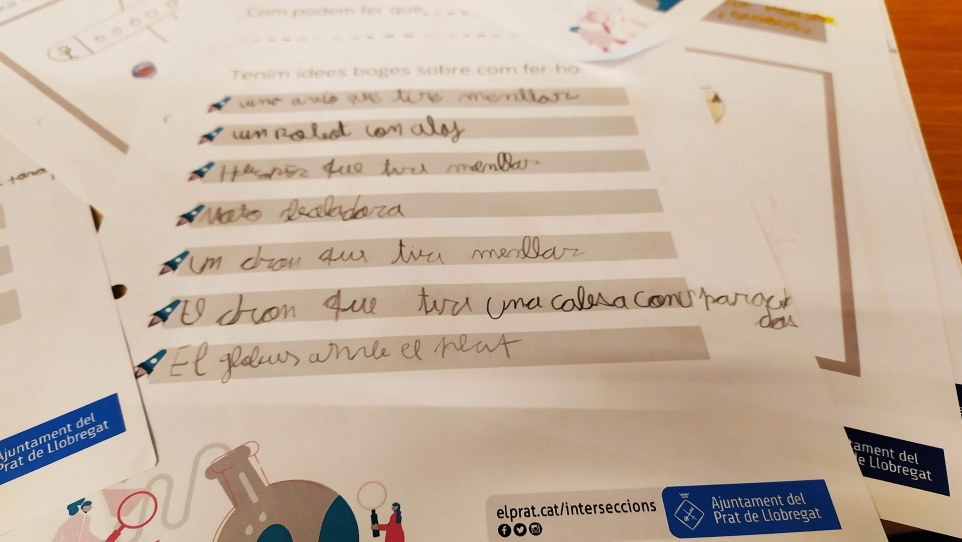 Com podem fer que
Tenim idees boges sobre com fer-ho:
que tire menllar
un Robot con alas
que tira menllar
Moto
un dron que tira menllar
El dron que tira una calesa cons paraqui
das
El globus amb el plat
Ajuntament del
Prat de Llobregat
elprat.cat/interseccions
Ajuntament del
Prat de Llobregat
ament del
e Llobregat